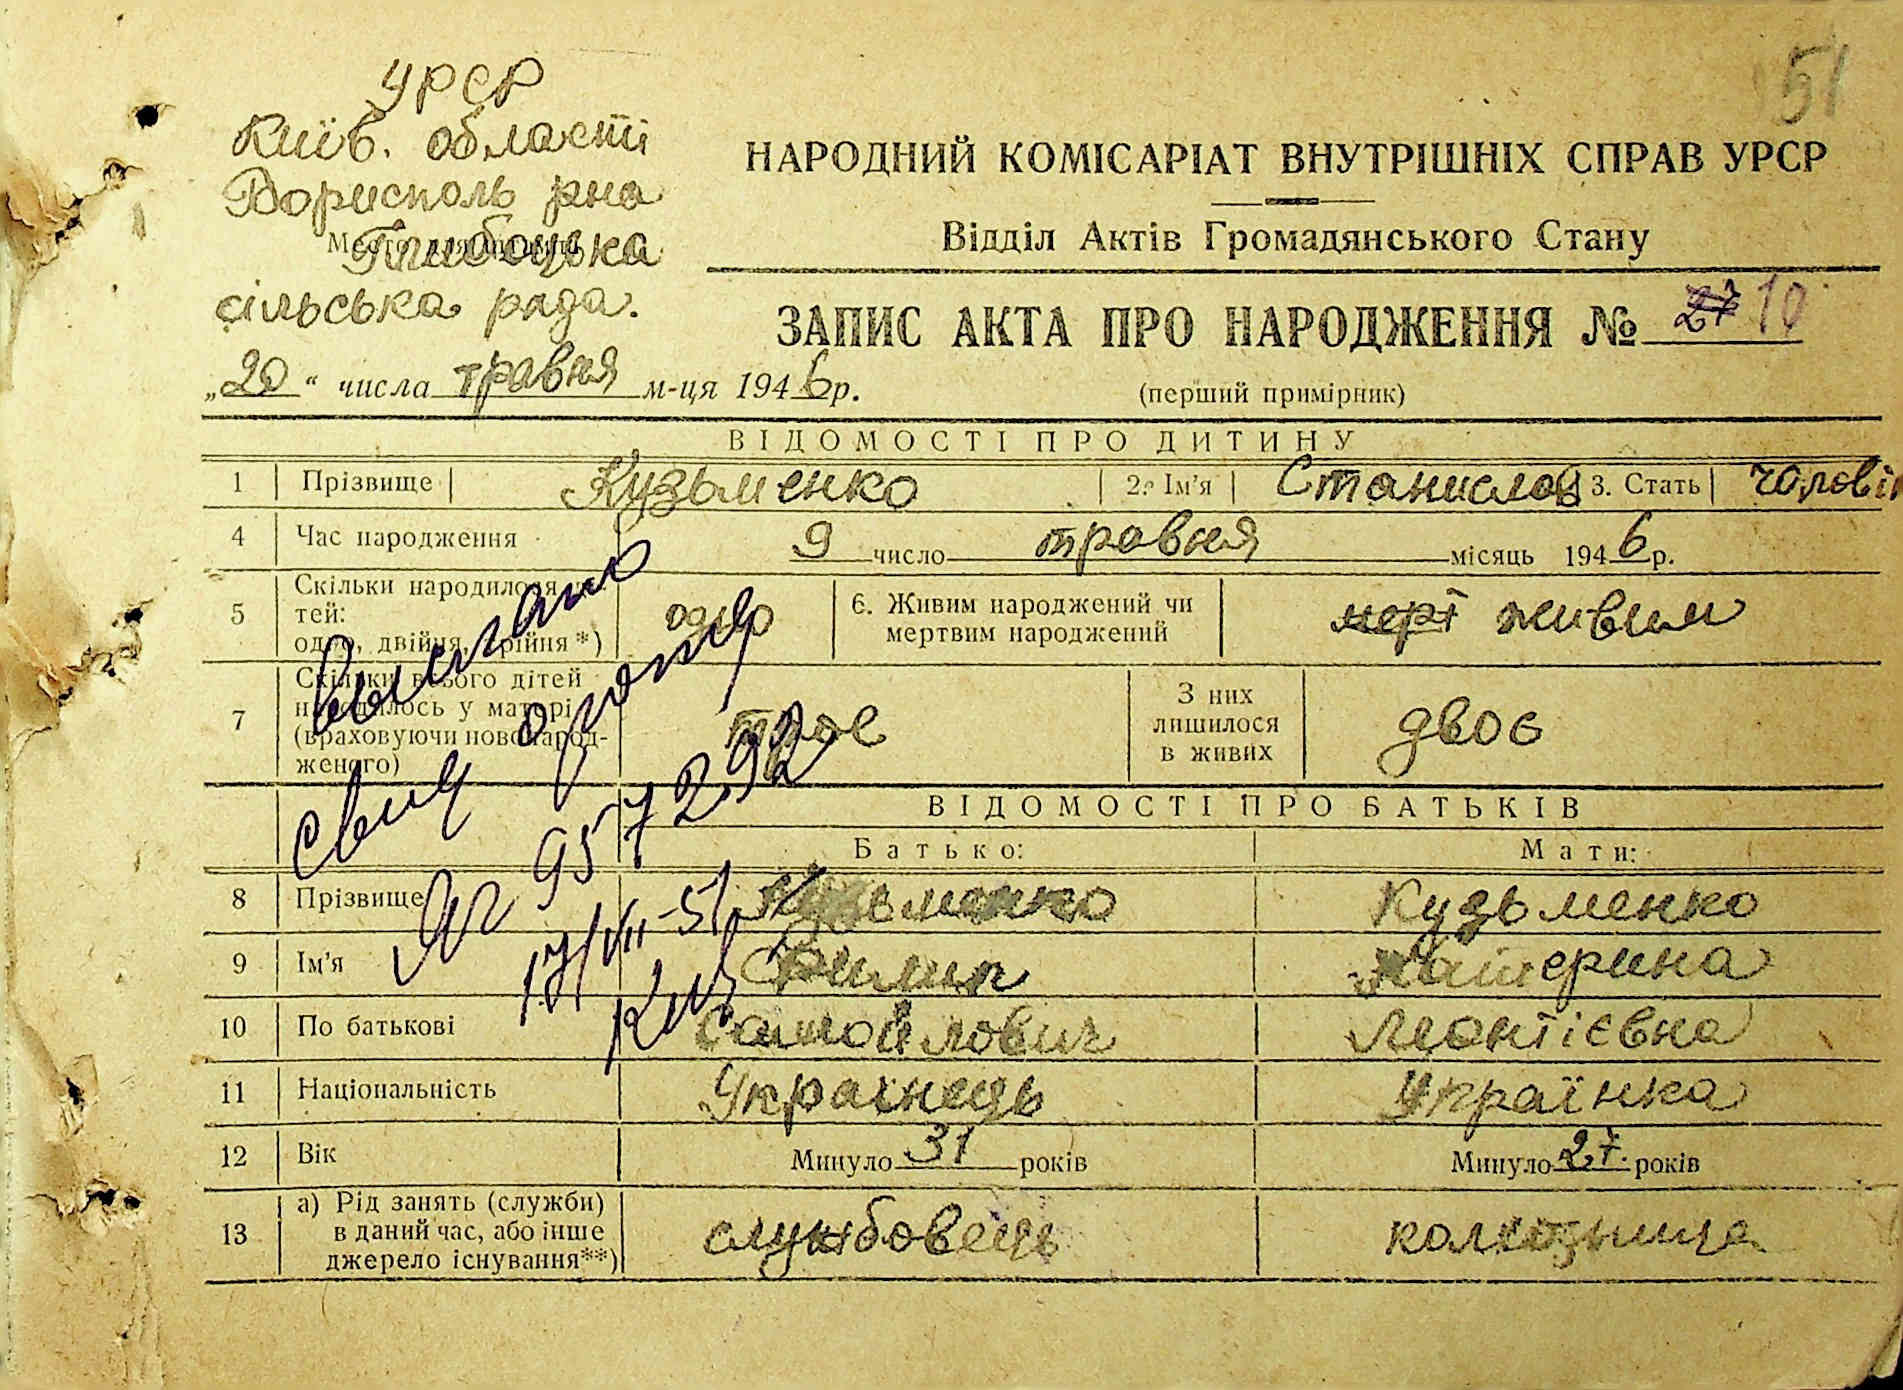 51
УРСР
Київ. області
Бориспіль рна
Глибоцька
сільська рада.
„20“ числа травня м-ця 1946 р.
НАРОДНИЙ КОМІСАРІАТ ВНУТРІШНІХ СПРАВ УРСР
Відділ Актів Громадянського Стану
ЗАПИС АКТА ПРО НАРОДЖЕННЯ № 27 10
(перший примірник)
ВІДОМОСТІ ПРО ДИТИНУ
1 Прізвище Кузьменко 2. Ім'я Станислав 3. Стать чолові
4 Час народження 9 число травня місяць 1946 р.
5 Скільки народилося ді-
тей:
одно, двійня, трійня *) одно 6. Живим народжений чи
мертвим народжений мерт живим
7 Скільки всього дітей
народилось у матері
(враховуючи новонарод-
женого) троє З них
лишилося
в живих двоє
ВІДОМОСТІ ПРО БАТЬКІВ
Батько: Мати:
8 Прізвище Кузьменко Кузьменко
9 Ім'я Филип Катерина
10 По батькові Самойлович Леонтієвна
11 Національність Українець Українка
12 Вік Минуло 31 років Минуло 27 років
13 а) Рід занять (служби)
в даний час, або інше
джерело існування**) службовець колгозниця
Выслано
свид
957292
17/VII-51